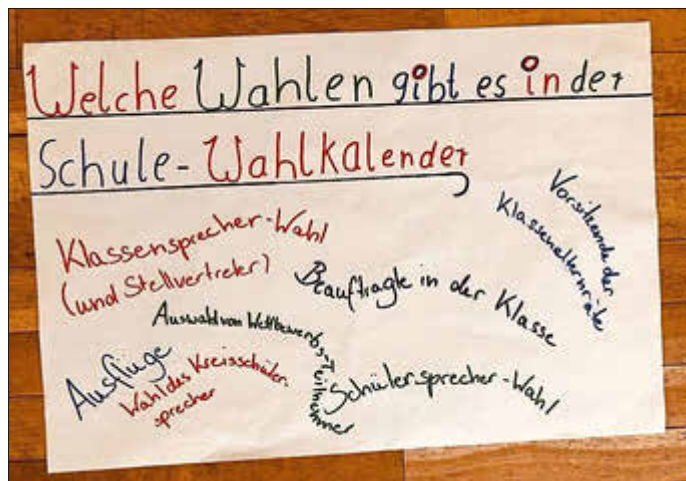 Welche Wahlen gibt es in der
Schule - Wahlkalender
Klassensprecher-Wahl
(und Stellvertreter)
Vorsitzende der
Klassenelternräte
Beauftragte in der Klasse
Auswahl von Wettbewerbs-Teilnehmer
Ausflüge
Wahl des Kreisschüler-
sprecher
Schülersprecher-Wahl